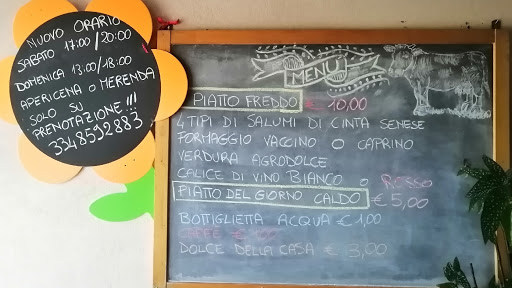 NUOVO ORARIO
SABATO 17:00/20:00
DOMENICA 13:00/18:00
APERICENA O MERENDA
SOLO SU
PRENOTAZIONE!!!
3348592883
MENU
PIATTO FREDDO € 10,00
4 TIPI DI SALUMI DI CINTA SENESE
FORMAGGIO VACCINO O CAPRINO
VERDURA AGRODOLCE
CALICE DI VINO BIANCO O ROSSO
PIATTO DEL GIORNO CALDO € 5,00
BOTTIGLIETTA ACQUA € 1,00
CAFFE €
DOLCE DELLA CASA € 3,00